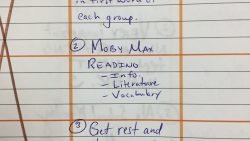 in first word of
each group.
② MOBY MAX
READING
- Info.
- Literature
- Vocabulary
③ Get rest and